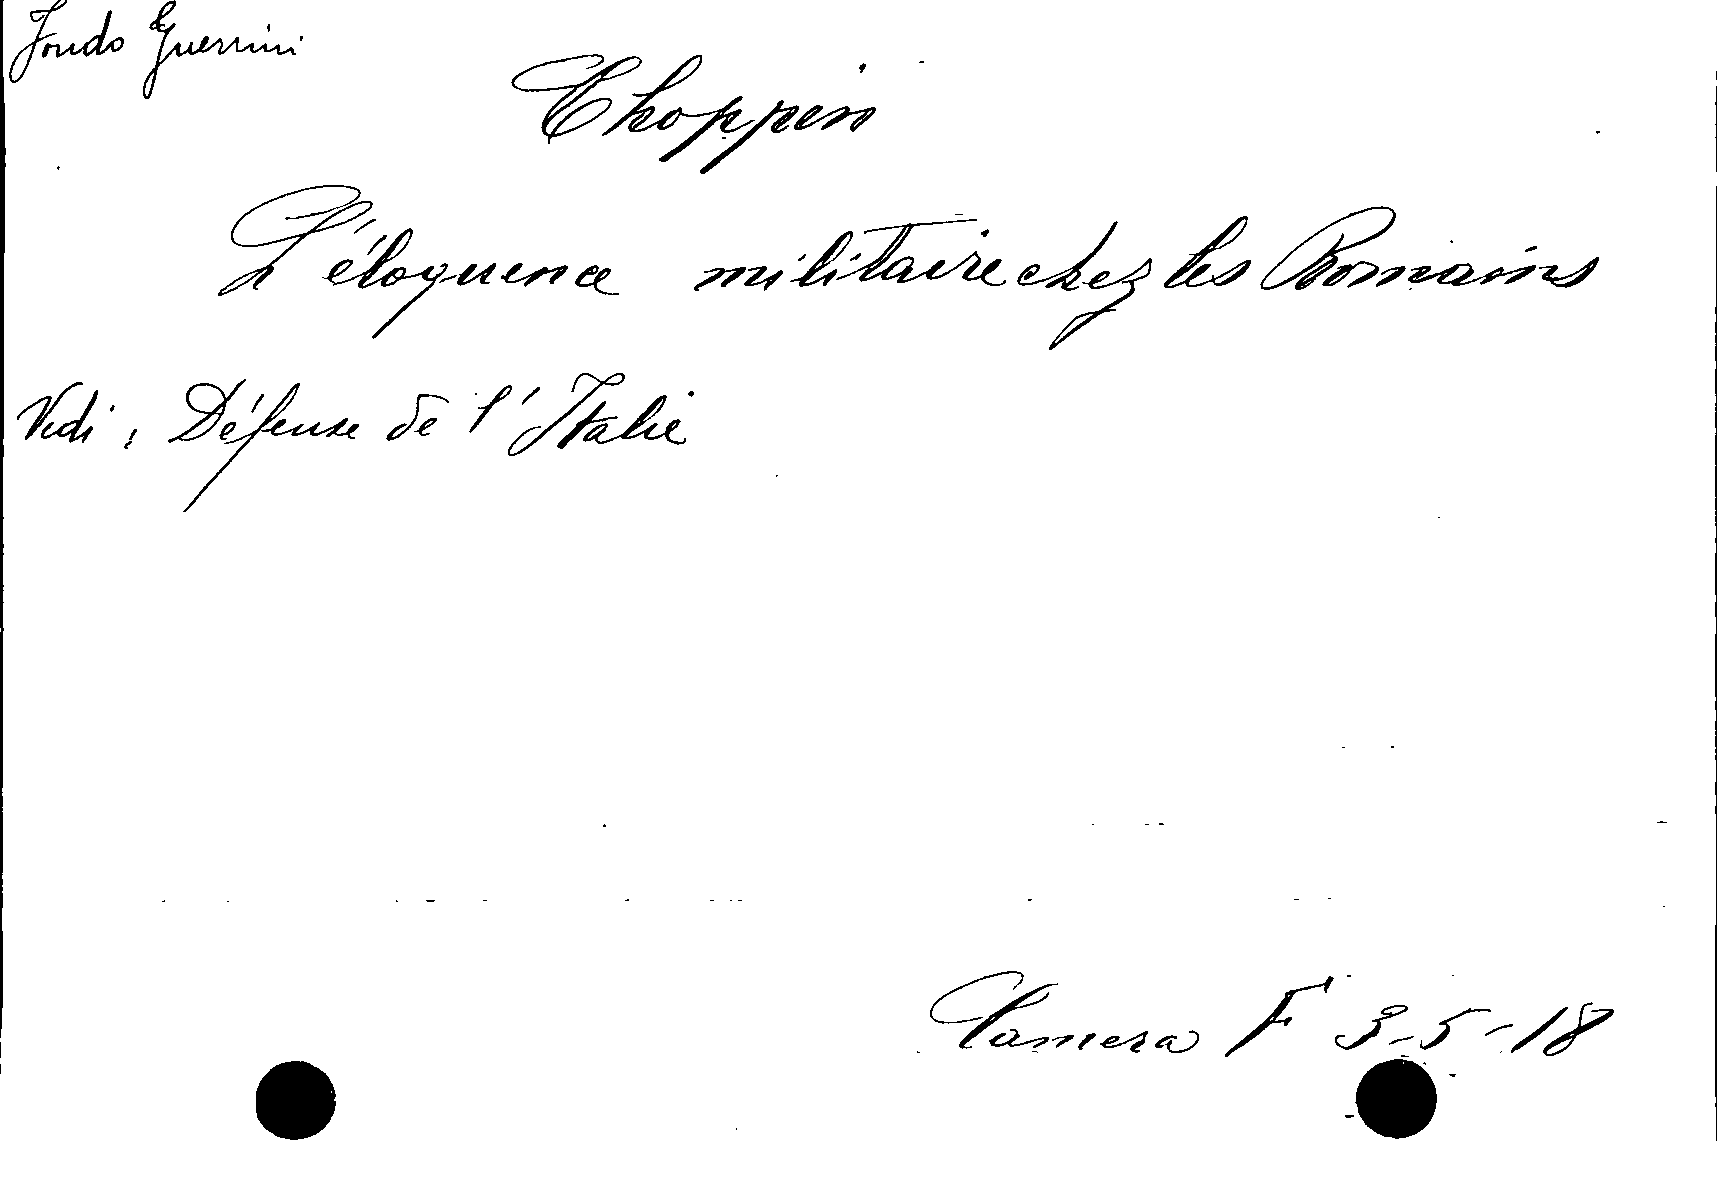 Fondo Guerrini
Choppin
L'éloquence militaire chez les Romains
Vedi: Défense de l'Italie
Camera F 3-5-18